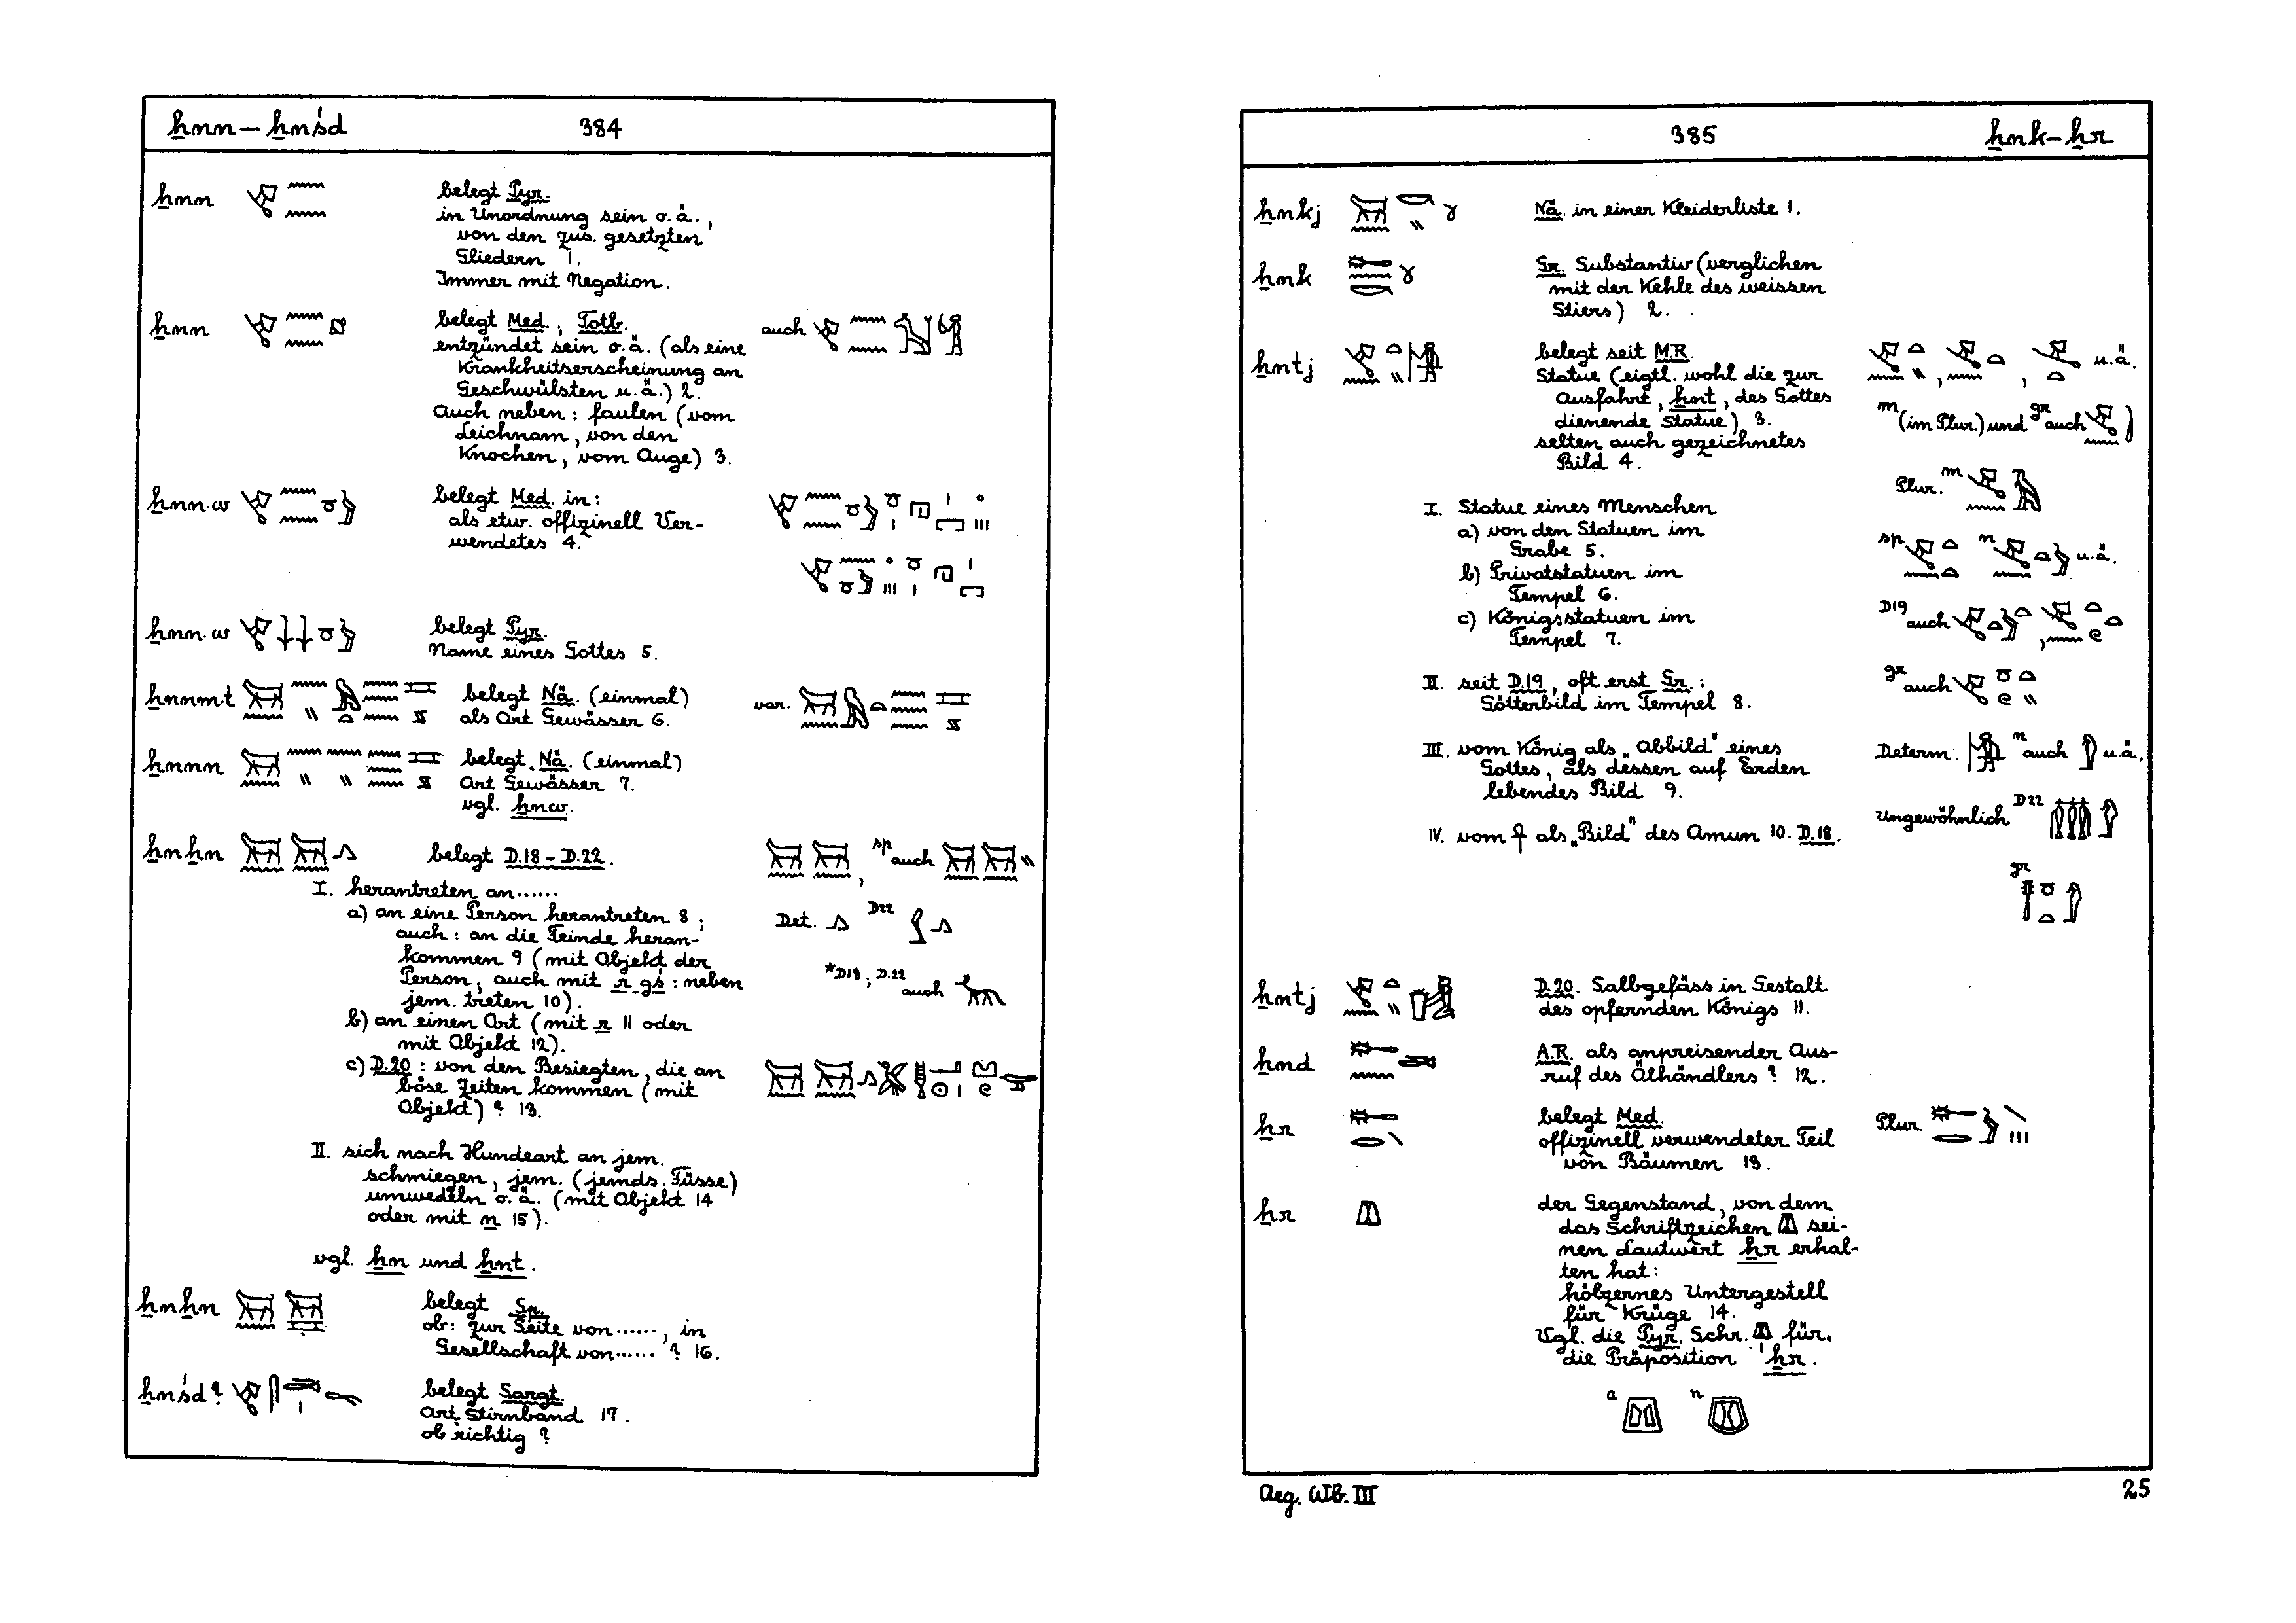 ẖnn – ẖnśd 384
ẖnn belegt Pyr.
in Unordnung sein o.ä.,
von den zus. gesetzten
Gliedern 1.
Immer mit Negation.
ẖnn belegt Med., Totb. auch
entzündet sein o.ä. (als eine
Krankheitserscheinung an
Geschwülsten u.ä.) 2.
Auch neben: faulen (vom
Leichnam, von den
Knochen, vom Auge) 3.
ẖnn.w belegt Med. in:
als etw. offizinell Ver-
wendetes 4.
ẖnn.w belegt Pyr.
Name eines Gottes 5.
ẖnnm.t belegt Nä. (einmal) var.
als Art Gewässer 6.
ẖnnn belegt Nä. (einmal)
Art Gewässer 7.
vgl. ẖnw.
ẖnẖn belegt D.18 – D.22. , sp auch
I. herantreten an......
a) an eine Person herantreten 8; Det. D22
auch: an die Feinde heran-
kommen 9 (mit Objekt der
Person, auch mit r gś: neben *D18; D.22 auch
jem. treten 10).
b) an einen Ort (mit r 11 oder
mit Objekt 12).
c) D.20: von den Besiegten, die an
böse Zeiten kommen (mit
Objekt)? 13.
II. sich nach Hundeart an jem.
schmiegen, jem. (jemds. Füsse)
umwedeln o.ä. (mit Objekt 14
oder mit n 15).
vgl. ẖn und ẖnt.
ẖnẖn belegt Sp.
ob: zur Seite von......, in
Gesellschaft von......? 16.
ẖnśd? belegt Sargt.
Art Stirnband 17.
ob richtig?
385 ẖnk – ẖr
ẖnkj Nä. in einer Kleiderliste 1.
ẖnk Gr. Substantiv (verglichen
mit der Kehle des weissen
Stiers) 2.
ẖntj belegt seit M.R. , , u.ä.
Statue (eigtl. wohl die zur
Ausfahrt, ẖnt, des Gottes
dienende Statue) 3. m (im Plur.) und gr auch
selten auch gezeichnetes
Bild 4.
Plur. m
I. Statue eines Menschen
a) von den Statuen im
Grabe 5. sp n u.ä.
b) Privatstatuen im
Tempel 6.
c) Königsstatuen im D19 auch ,
Tempel 7.
II. seit D.19, oft erst Gr.: gr auch
Götterbild im Tempel 8.
III. vom König als „Abbild" eines Determ. n auch u.ä.
Gottes, als dessen auf Erden
lebendes Bild 9.
Ungewöhnlich D22
IV. vom als „Bild" des Amun 10. D.18.
gr
ẖntj D.20. Salbgefäss in Gestalt
des opfernden Königs 11.
ẖnd A.R. als anpreisender Aus-
ruf des Ölhändlers? 12.
ẖr belegt Med. Plur.
offizinell verwendeter Teil
von Bäumen 13.
ẖr der Gegenstand, von dem
das Schriftzeichen sei-
nen Lautwert ẖr erhal-
ten hat:
hölzernes Untergestell
für Krüge 14.
Vgl. die Pyr. Schr. für
die Präposition ẖr.
a n
Aeg. Wb. III 25